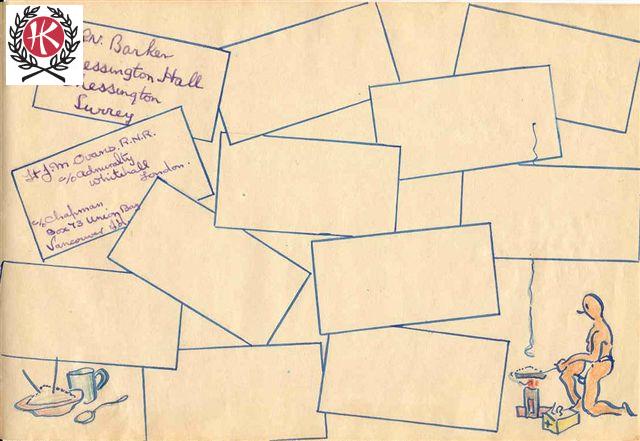 HK
Barker
essington Hall
hessington
Surrey
Lt J. M. Ovans, R.N.R.
c/o Admiralty
Whitehall
London.
c/o Chapman
Box 73 Union Bay
Vancouver